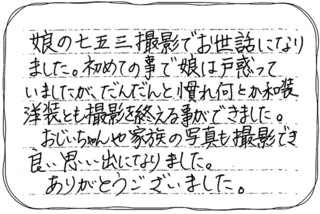 娘の七五三撮影でお世話になり
ました。初めての事で娘は戸惑って
いましたが、だんだんと慣れ何とか和装
洋装とも撮影を終える事ができました。
おじいちゃんや家族の写真も撮影でき
良い思い出になりました。
ありがとうございました。